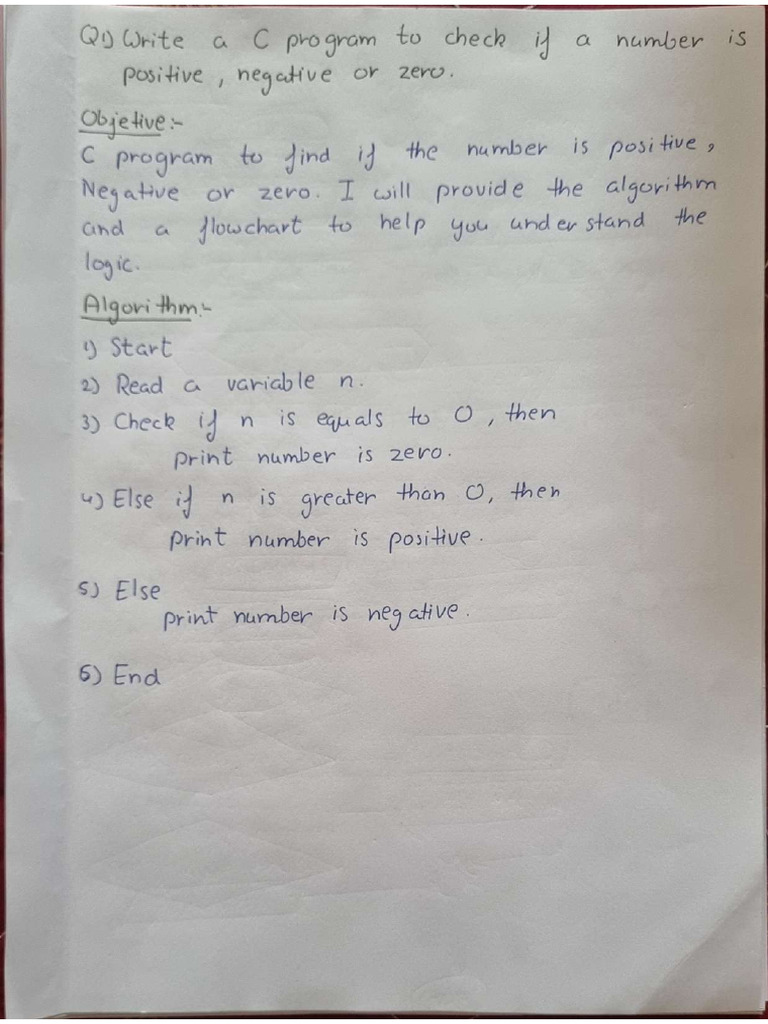 Q1) Write a C program to check if a number is
positive, negative or zero.
Objetive:-
C program to find if the number is positive,
Negative or zero. I will provide the algorithm
and a flowchart to help you understand the
logic.
Algorithm:-
1) Start
2) Read a variable n.
3) Check if n is equals to 0, then
print number is zero.
4) Else if n is greater than 0, then
print number is positive.
5) Else
print number is negative.
6) End